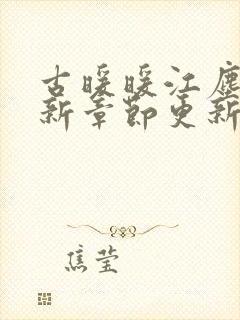 古暖暖江尘
新章节更新
焦莹